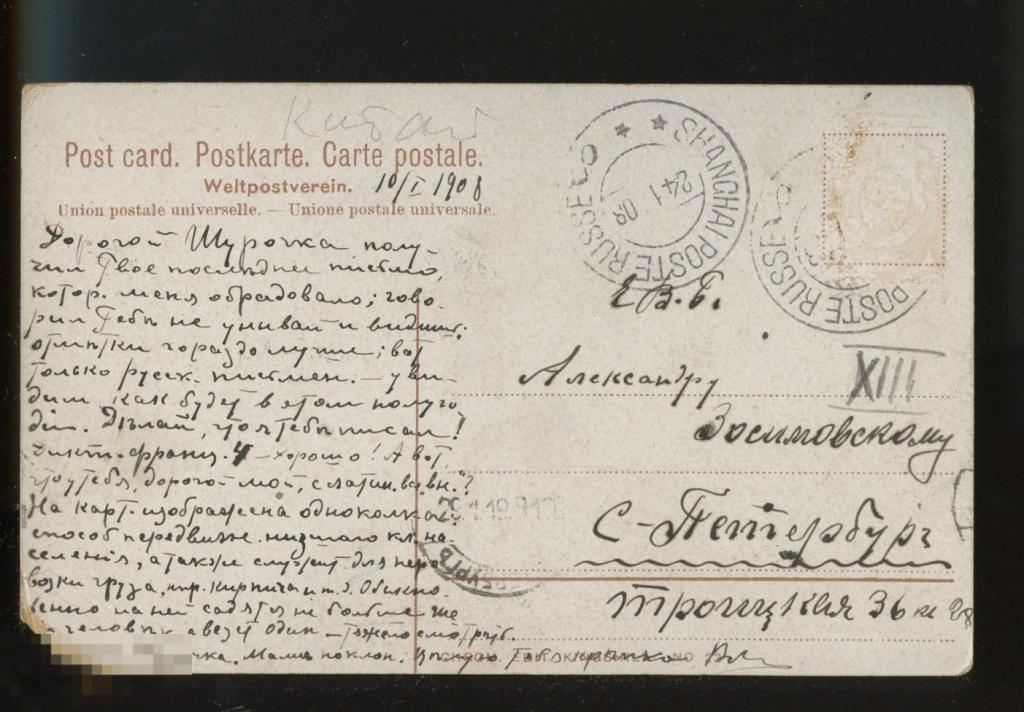 Китай
Post card. Postkarte. Carte postale.
Weltpostverein. 10/I 1908
Union postale universelle. — Unione postale universale.
SHANGHAI POSTE RUSSE
24 1 08
POSTE RUSSE
Дорогой Шурочка полу-
чил Твое последнее письмо,
котор. меня обрадовало; гово-
рил Тебѣ не унывай и
отмѣтки гораздо лучше; вот
только русск. письмен. — уви-
дим, как будет в этом полуго-
діи. Дѣлай, что я тебѣ писал!
франц. 4 — хорошо! А вот
что у тебя, дорогой мой, с латин. ?
На карт. изображена одноколка
способ передвиж. низшаго кл. на-
селенія, а также служит для пере-
возки груза, кирпича и т. д. Обыкно-
венно на ней садятся не больше
человѣк а везет один — тяжело смотрѣть.
Мамѣ поклон.
Е. В. Б.
Александру
XIII
Зосимовскому
С-Петербург
Троицкая 36 кв 28